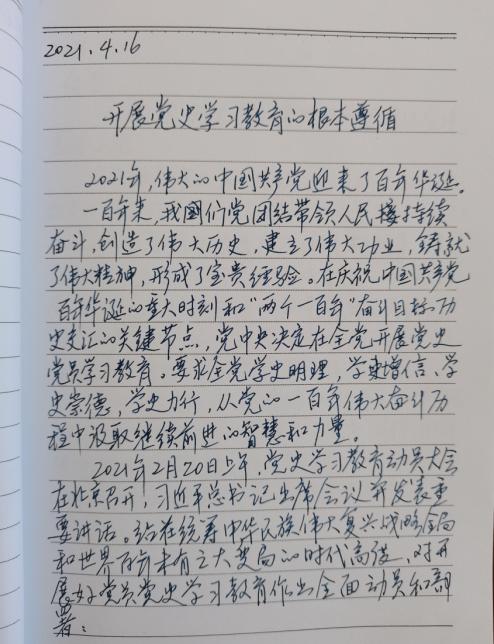 2021.4.16
开展党史学习教育的根本遵循
2021年,伟大的中国共产党迎来了百年华诞。
一百年来,我国们党团结带领人民接持续
奋斗,创造了伟大历史,建立了伟大功业,铸就
了伟大精神,形成了宝贵经验。在庆祝中国共产党
百年华诞的重大时刻和“两个一百年”奋斗目标历
史交汇的关键节点,党中央决定在全党开展党史
党员学习教育。要求全党学史明理,学史增信、学
史崇德,学史力行,从党的一百年伟大奋斗历
程中汲取继续前进的智慧和力量。
2021年2月20日上午,党史学习教育动员大会
在北京召开,习近平总书记出席会议并发表重
要讲话。站在统筹中华民族伟大复兴战略全局
和世界百年未有之大变局的时代高度,对开
展好党员党史学习教育作出全面动员和部
署: